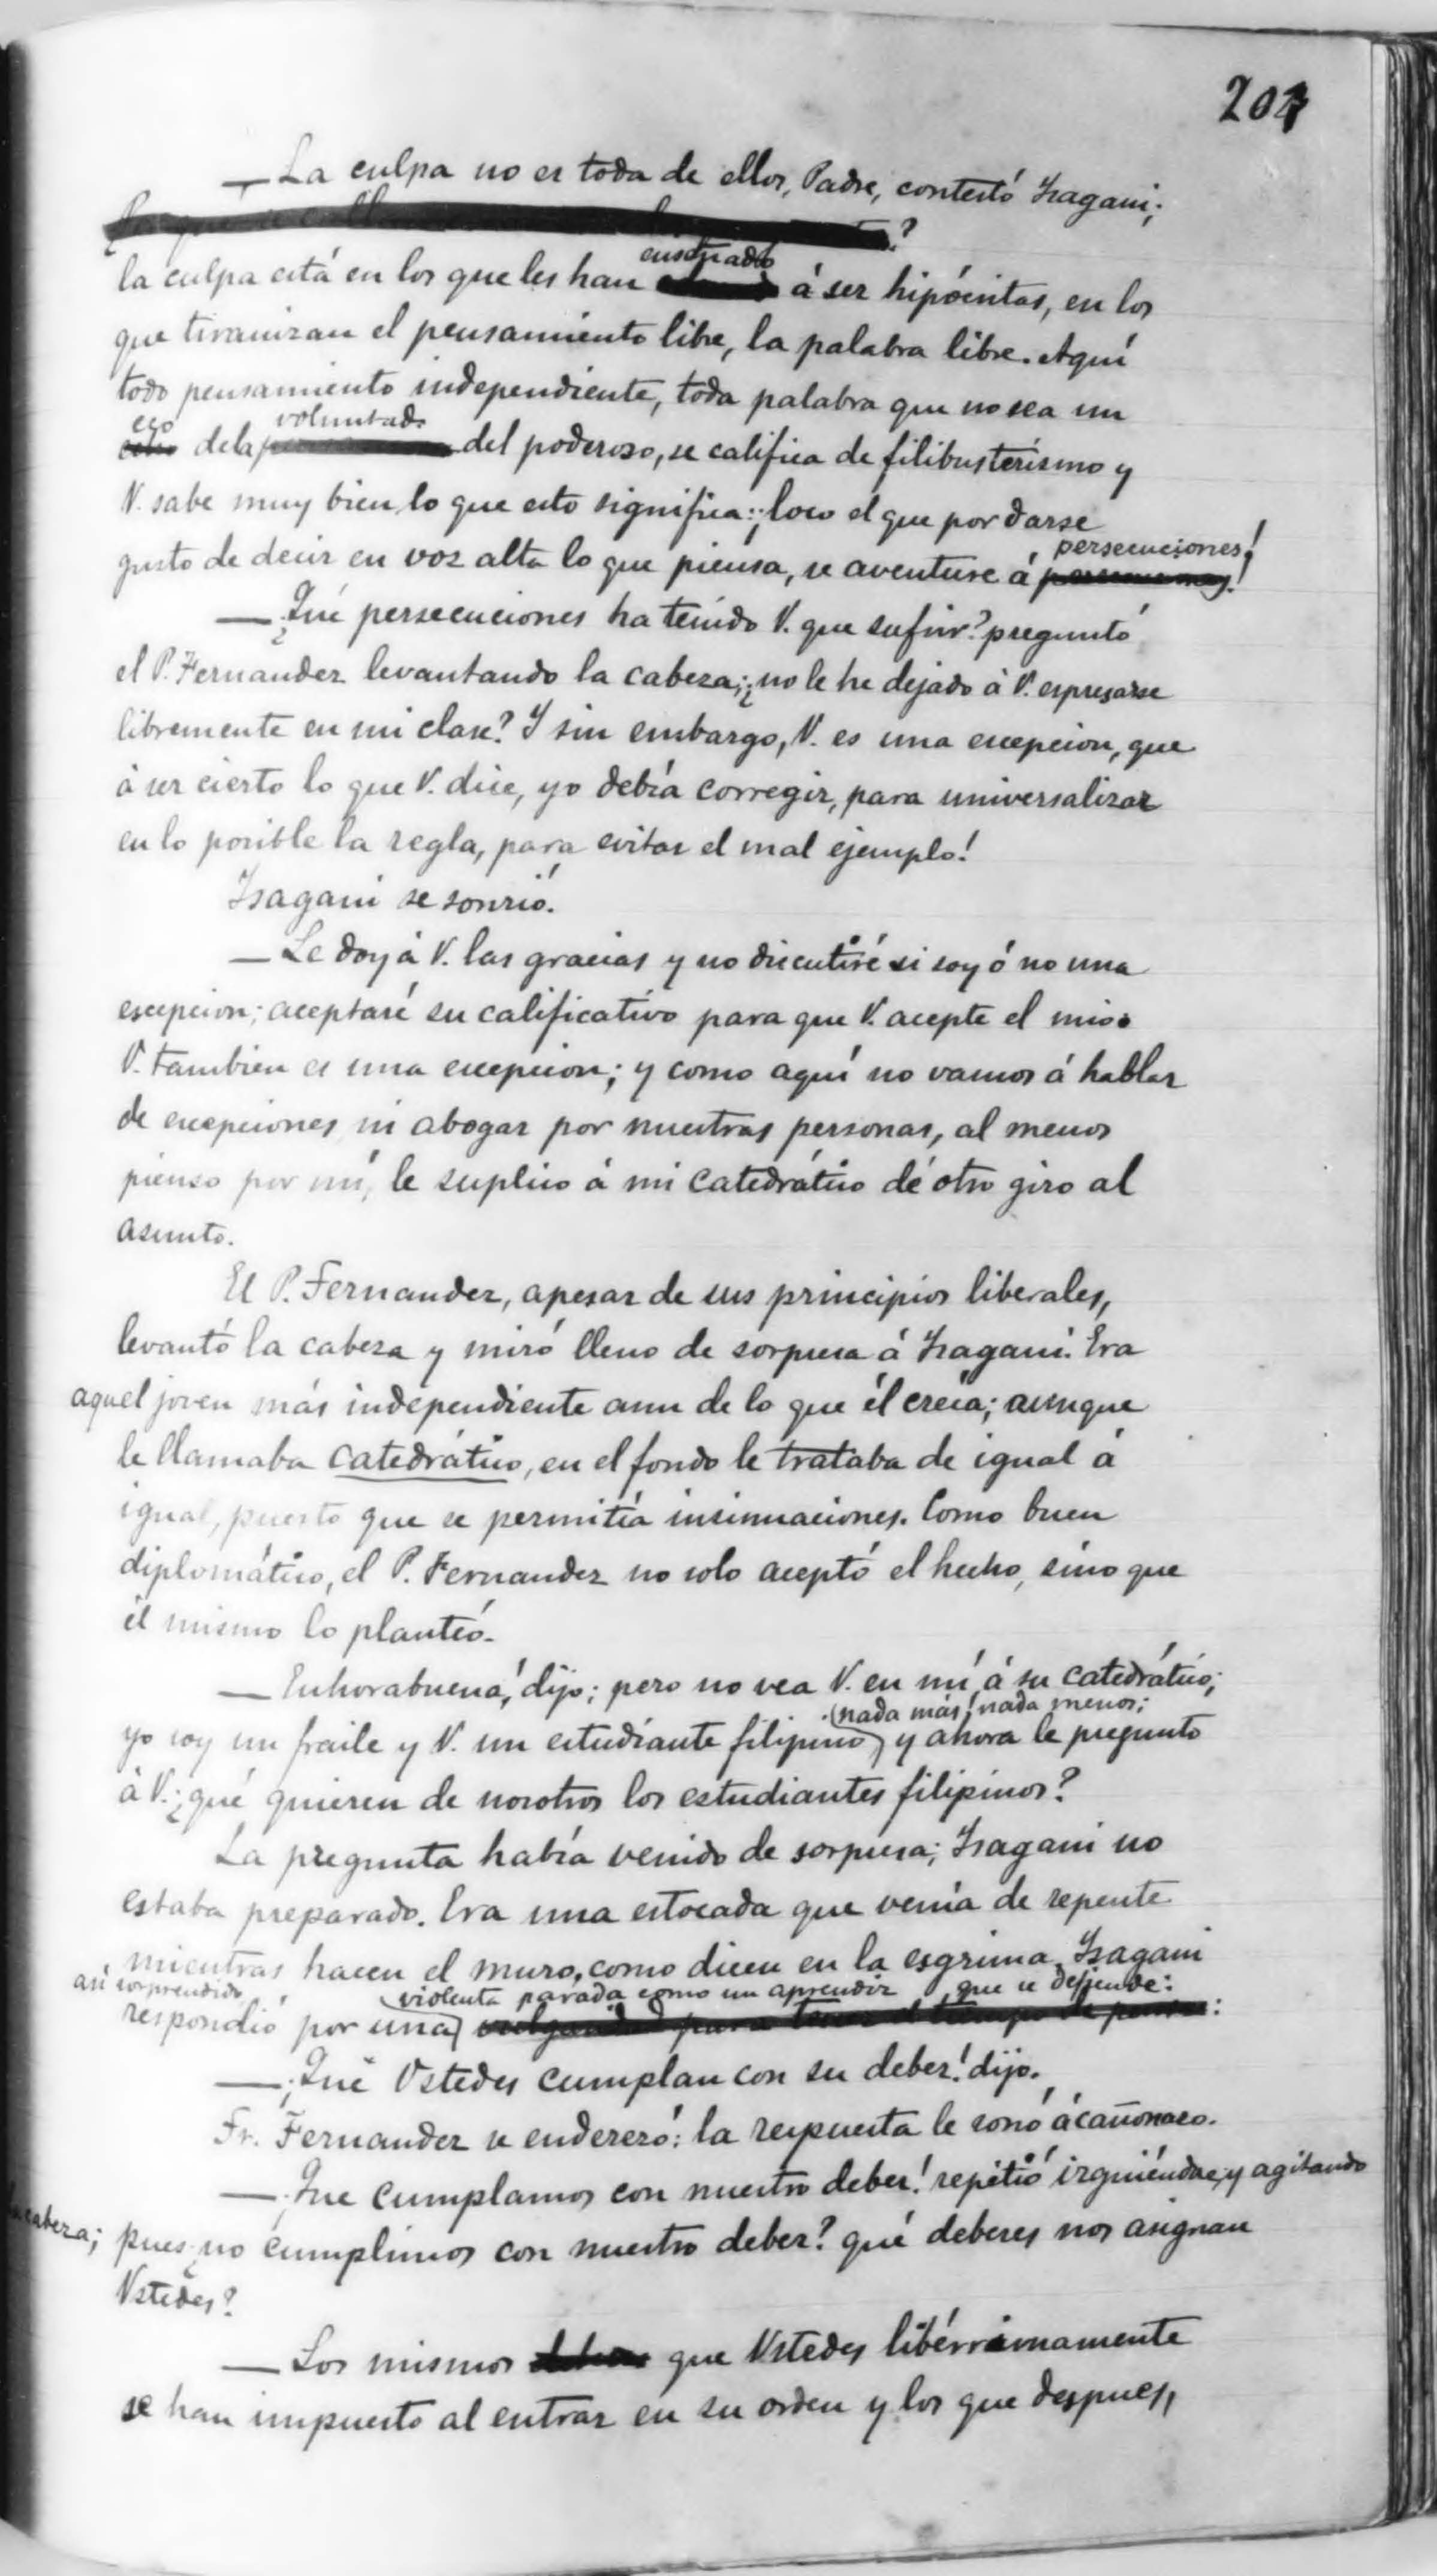 204
— La culpa no es toda de ellos, Padre, contestó Isagani;
?
la culpa está en los que les han enseñado á ser hipócritas, en los
que tiranizan el pensamiento libre, la palabra libre. Aquí
todo pensamiento independiente, toda palabra que no sea un
eco de la voluntad del poderoso, se califica de filibusterismo y
V. sabe muy bien lo que esto significa: ¡loco el que por darse
gusto de decir en voz alta lo que piensa, se aventure á persecuciones!
— ¿Qué persecuciones ha tenido V. que sufrir? preguntó
el P. Fernandez levantando la cabeza; ¿no le he dejado á V. espresarse
libremente en mi clase? Y sin embargo, V. es una escepcion, que
á ser cierto lo que V. dice, yo debía corregir, para universalizar
en lo posible la regla, para evitar el mal ejemplo!
Isagani se sonrió.
— Le doy á V. las gracias y no discutiré si soy ó no una
escepcion; aceptaré su calificativo para que V. acepte el mio:
V. tambien es una escepcion; y como aquí no vamos á hablar
de escepciones ni abogar por nuestras personas, al menos
pienso por mí, le suplico á mi catedrático dé otro giro al
asunto.
El P. Fernandez, apesar de sus principios liberales,
levantó la cabeza y miró lleno de sorpresa á Isagani. Era
aquel joven más independiente aun de lo que él creía; aunque
le llamaba catedrático, en el fondo le trataba de igual á
igual, puesto que se permitía insinuaciones. Como buen
diplomático, el P. Fernandez no solo aceptó el hecho, sino que
él mismo lo planteó.
— Enhorabuena! dijo; pero no vea V. en mí á su catedrático;
yo soy un fraile y V. un estudiante filipino, nada más! nada menos; y ahora le pregunto
á V. ¿qué quieren de nosotros los estudiantes filipinos?
La pregunta había venido de sorpresa; Isagani no
estaba preparado. Era una estocada que venía de repente
mientras hacen el muro, como dicen en la esgrima. Isagani
así sorprendido respondió por una violenta parada como un aprendiz que se defiende:
— ¡Qué Ustedes cumplan con su deber! dijo.
Fr. Fernandez se enderezó: la respuesta le sonó á cañonazo.
— ¡Que cumplamos con nuestro deber! repitió irguiéndose y agitando
la cabeza; pues ¿no cumplimos con nuestro deber? qué deberes nos asignan
Ustedes?
— Los mismos que Ustedes libérrimamente
se han impuesto al entrar en su orden y los que despues,